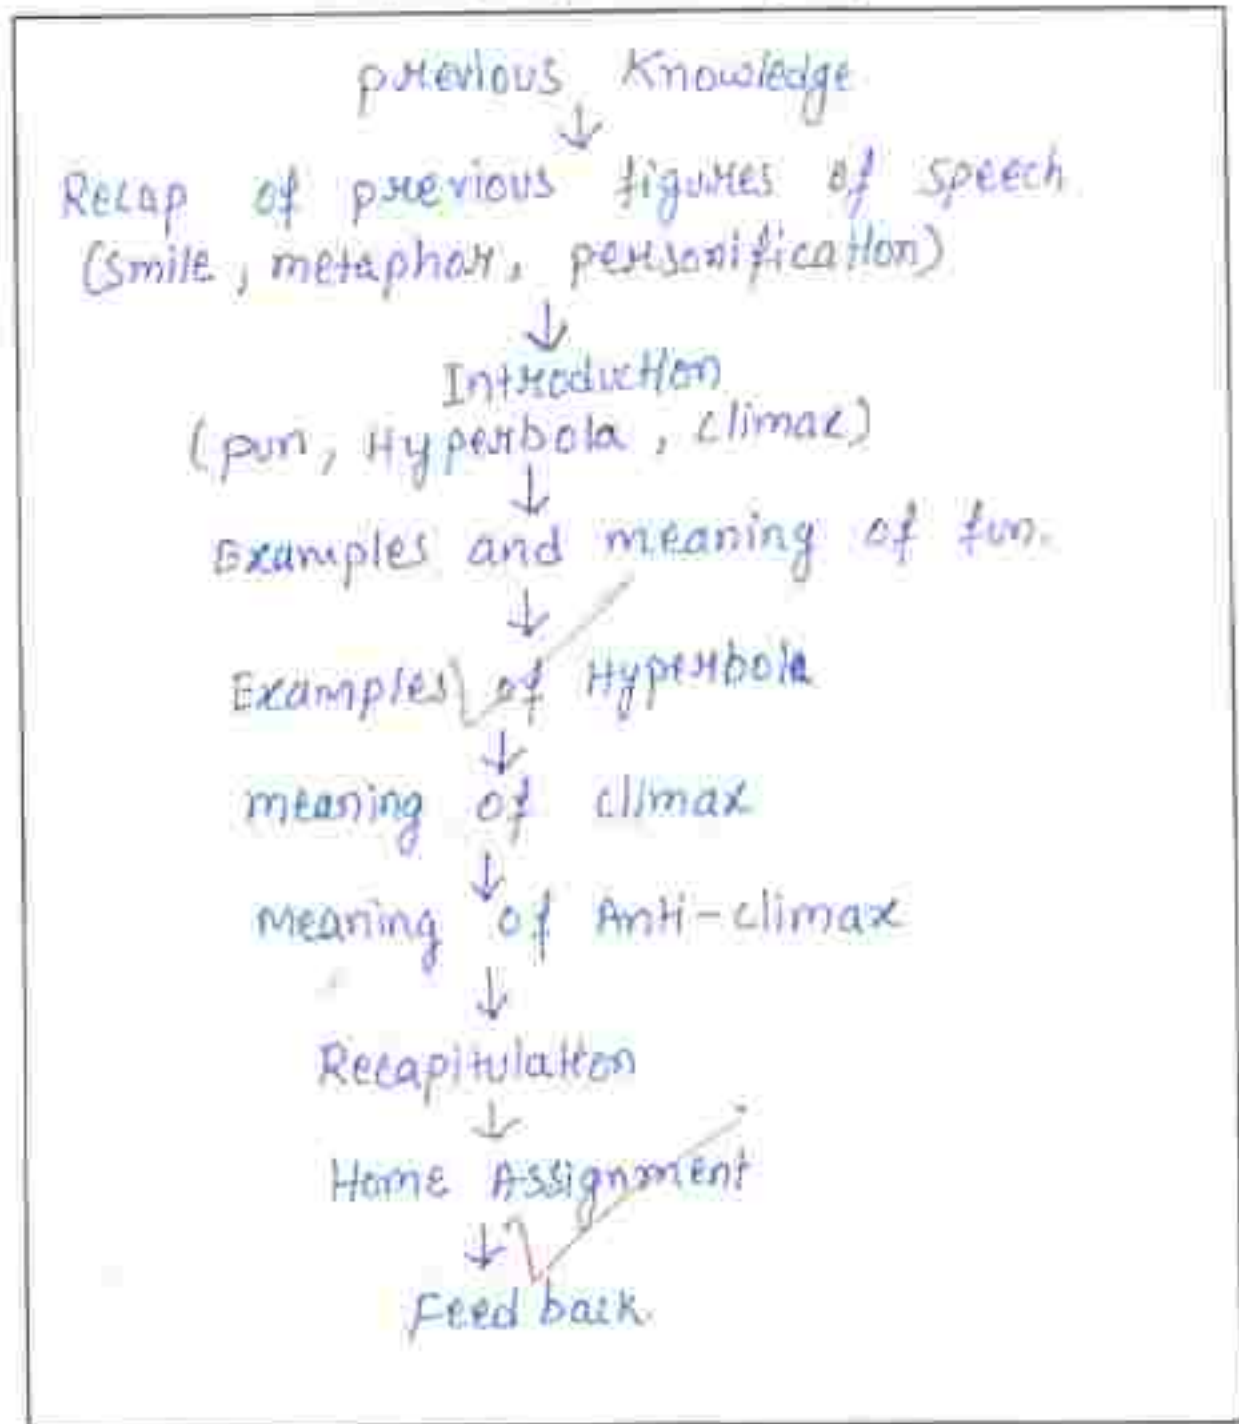 previous Knowledge
↓
Recap of previous figures of speech
(smile, metaphor, personification)
↓
Introduction
(pun, Hyperbola, climax)
↓
Examples and meaning of fun.
↓
Examples of Hyperbola
↓
meaning of climax
↓
Meaning of Anti-climax
↓
Recapitulation
↓
Home Assignment
↓
Feed back.